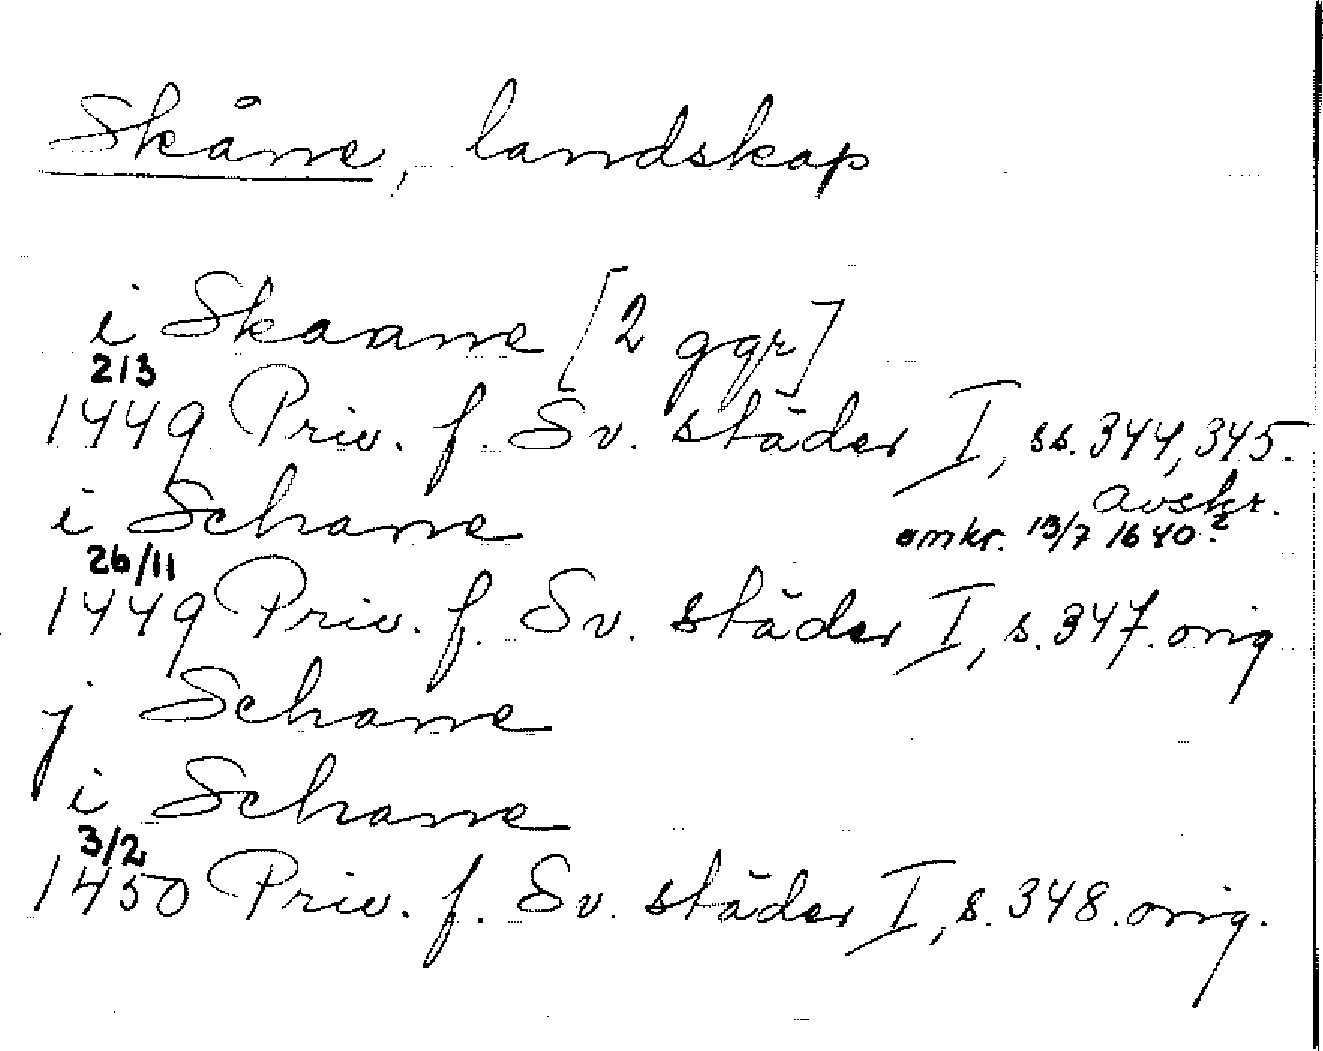 Skåne, landskap
i Skaane [2 ggr]
2/3
1449 Priv. f. Sv. städer I, ss. 344, 345.
avskr.
i Schane
omkr. 13/7 1640?
26/11
1449 Priv. f. Sv. städer I, s. 347. orig
j Schane
i Schane
3/2
1450 Priv. f. Sv. städer I, s. 348. orig.